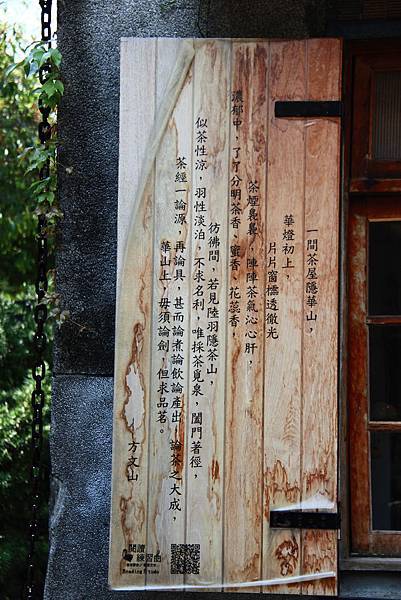 一間茶屋隱華山，
華燈初上，
片片窗櫺透微光
茶煙裊裊，陣陣茶氣沁心肝，
濃郁中，了了分明茶香、蜜香、花蕊香，
彷彿間，若見陸羽隱茶山，
似茶性涼，羽性淡泊，不求名利，唯採茶覓泉，闔門著徑，
茶經一論源，再論具，甚而論煮論飲論產出，論茶之大成，
華山上，毋須論劍，但求品茗。
方文山
閱讀
練習曲
Reading Etude